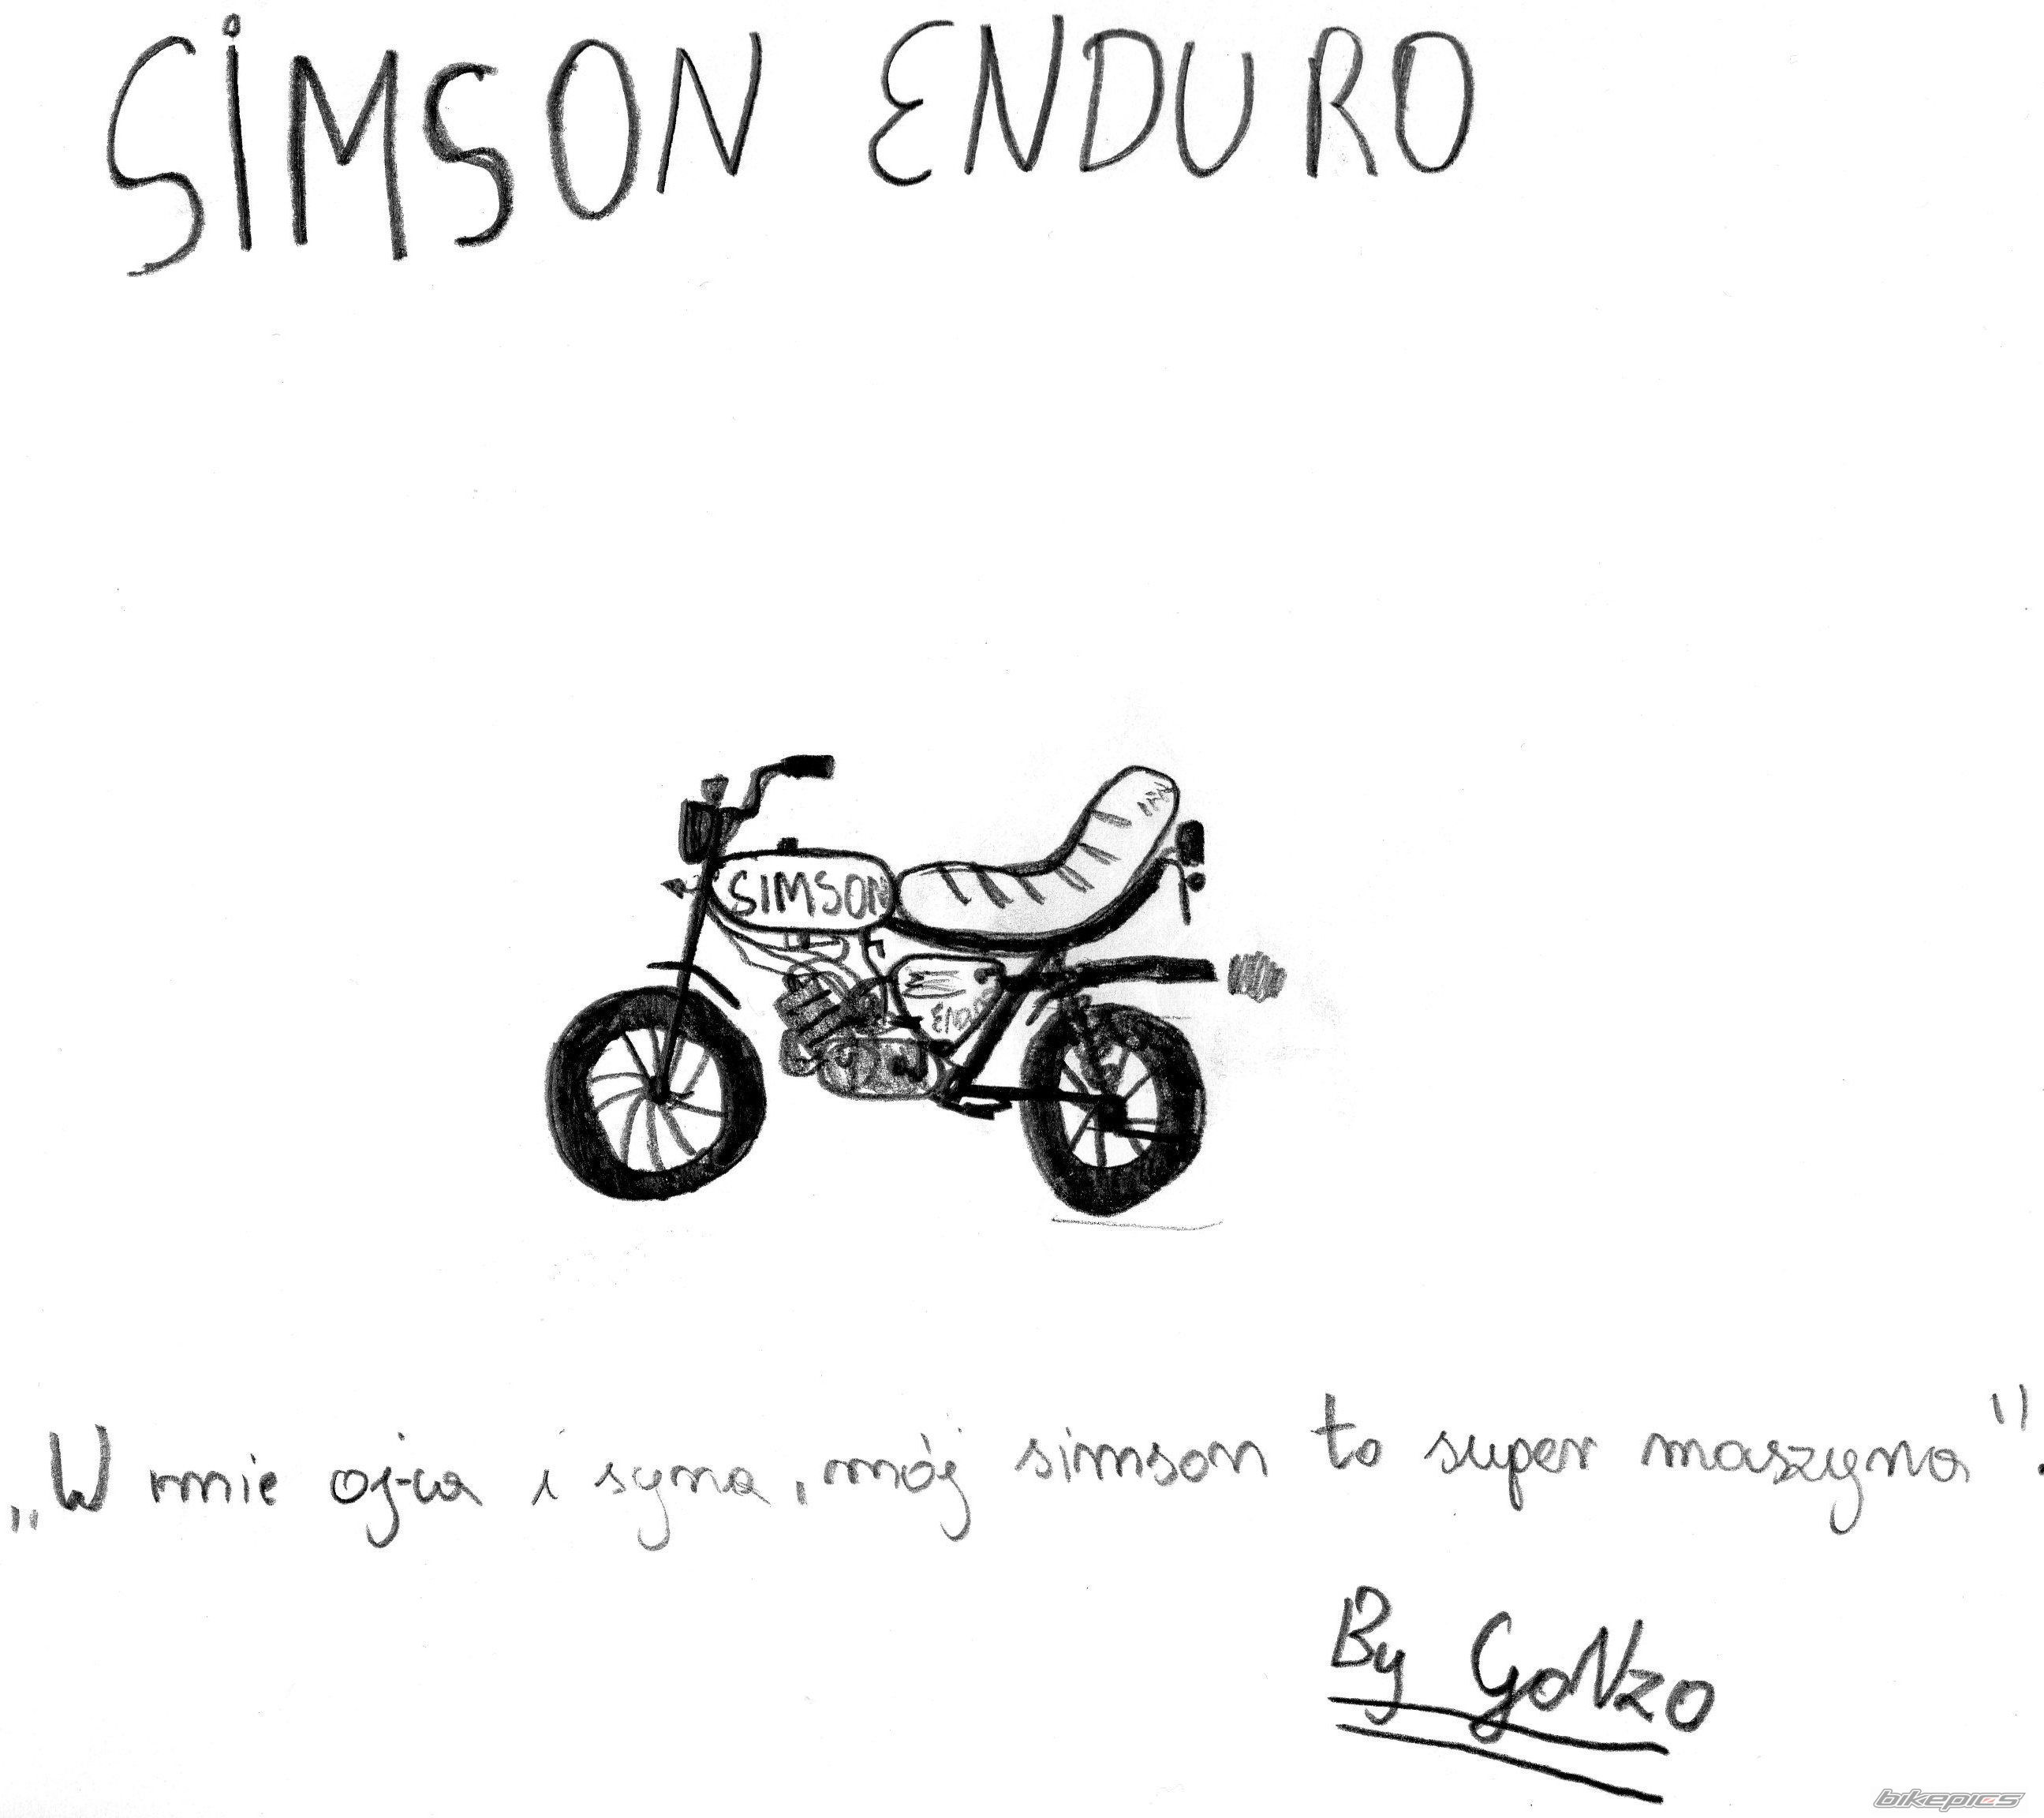 SiMSON ENDURO
SIMSON
ENDU
„W mie ojca i syna, mój simson to super maszyna".
By GoNzo
bikepics